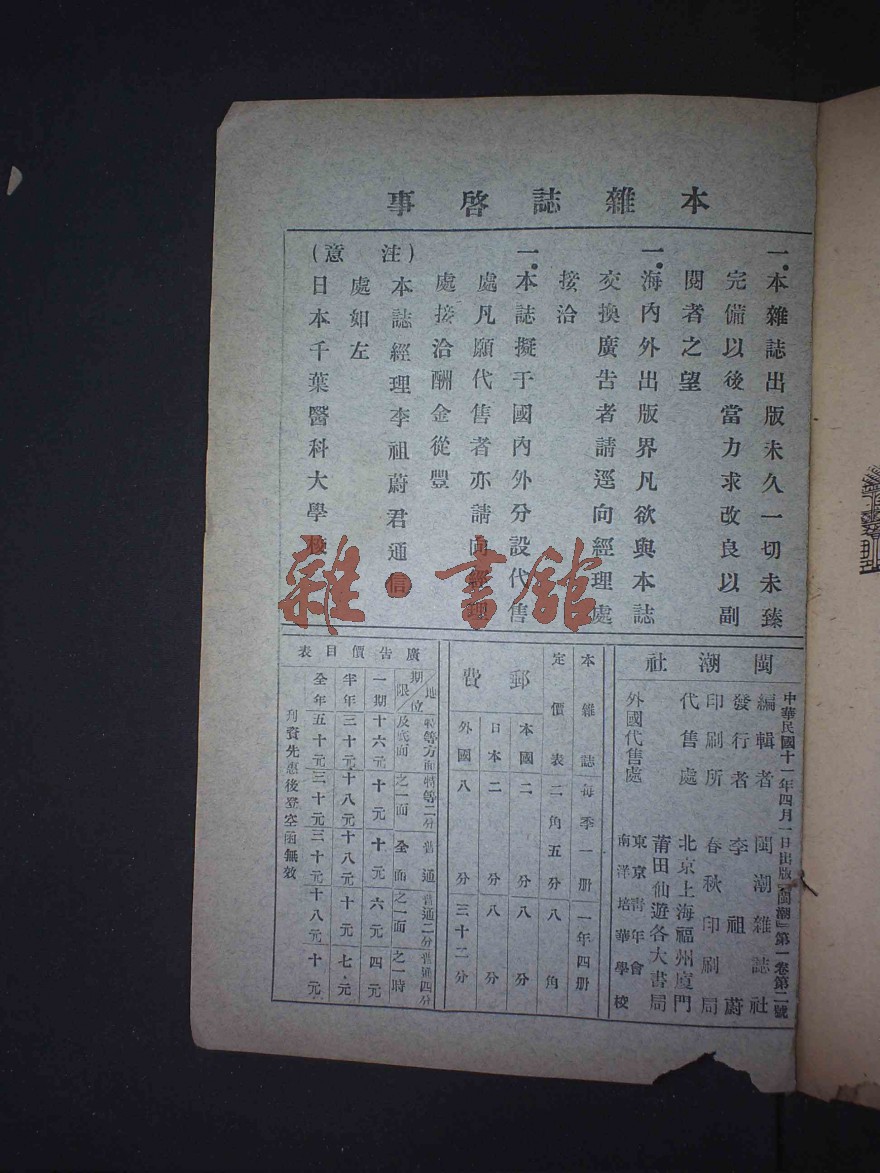 本雜誌啓事
一．本雜誌出版未久一切未臻
完備以後當力求改良以副
閱者之望
一．海內外出版界凡欲與本誌
交換廣告者請逕向經理處
接洽
一．本誌擬于國內外分設代售
處凡願代售者亦請向經理
處接洽酬金從豐
（注意）
本誌經理李祖蔚君通信
處如左
日本千葉醫科大學校
雜·書舘
閩潮社
中華民國十一年四月一日出版『閩潮』第一卷第二號
編輯者 閩潮雜誌社
發行者 李祖蔚
印刷所 春秋印刷局
代售處 北京上海福州廈門
莆田仙遊各大書局
外國代售處 東京靑年會
南洋培華學校
本雜誌 每季一册 一年四册
定價表 二角五分 八角
郵費
本國 二分 八分
日本 二分 八分
外國 八分 三十二分
廣告價目表
地位 特等方面及底面 特等二分之一面 普通全面 普通二分之一面 普通四分之一時
期限
一期 十六元 十元 十元 六元 四元
半年 三十元 十八元 十八元 十元 七元
全年 五十元 三十元 三十元 十八元 十元
刋資先惠後登空函無效